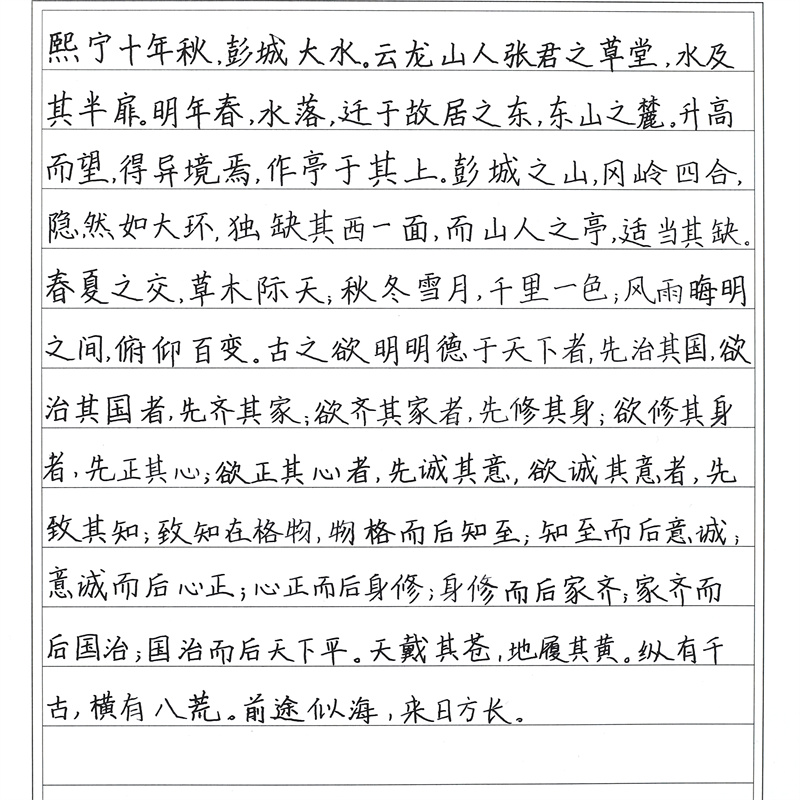 熙宁十年秋,彭城大水。云龙山人张君之草堂,水及
其半扉。明年春,水落,迁于故居之东,东山之麓。升高
而望,得异境焉,作亭于其上。彭城之山,冈岭四合,
隐然如大环,独缺其西一面,而山人之亭,适当其缺。
春夏之交,草木际天;秋冬雪月,千里一色;风雨晦明
之间,俯仰百变。古之欲明明德于天下者,先治其国,欲
治其国者,先齐其家;欲齐其家者,先修其身;欲修其身
者,先正其心;欲正其心者,先诚其意,欲诚其意者,先
致其知;致知在格物,物格而后知至;知至而后意诚;
意诚而后心正;心正而后身修;身修而后家齐;家齐而
后国治;国治而后天下平。天戴其苍,地履其黄。纵有千
古,横有八荒。前途似海,来日方长。